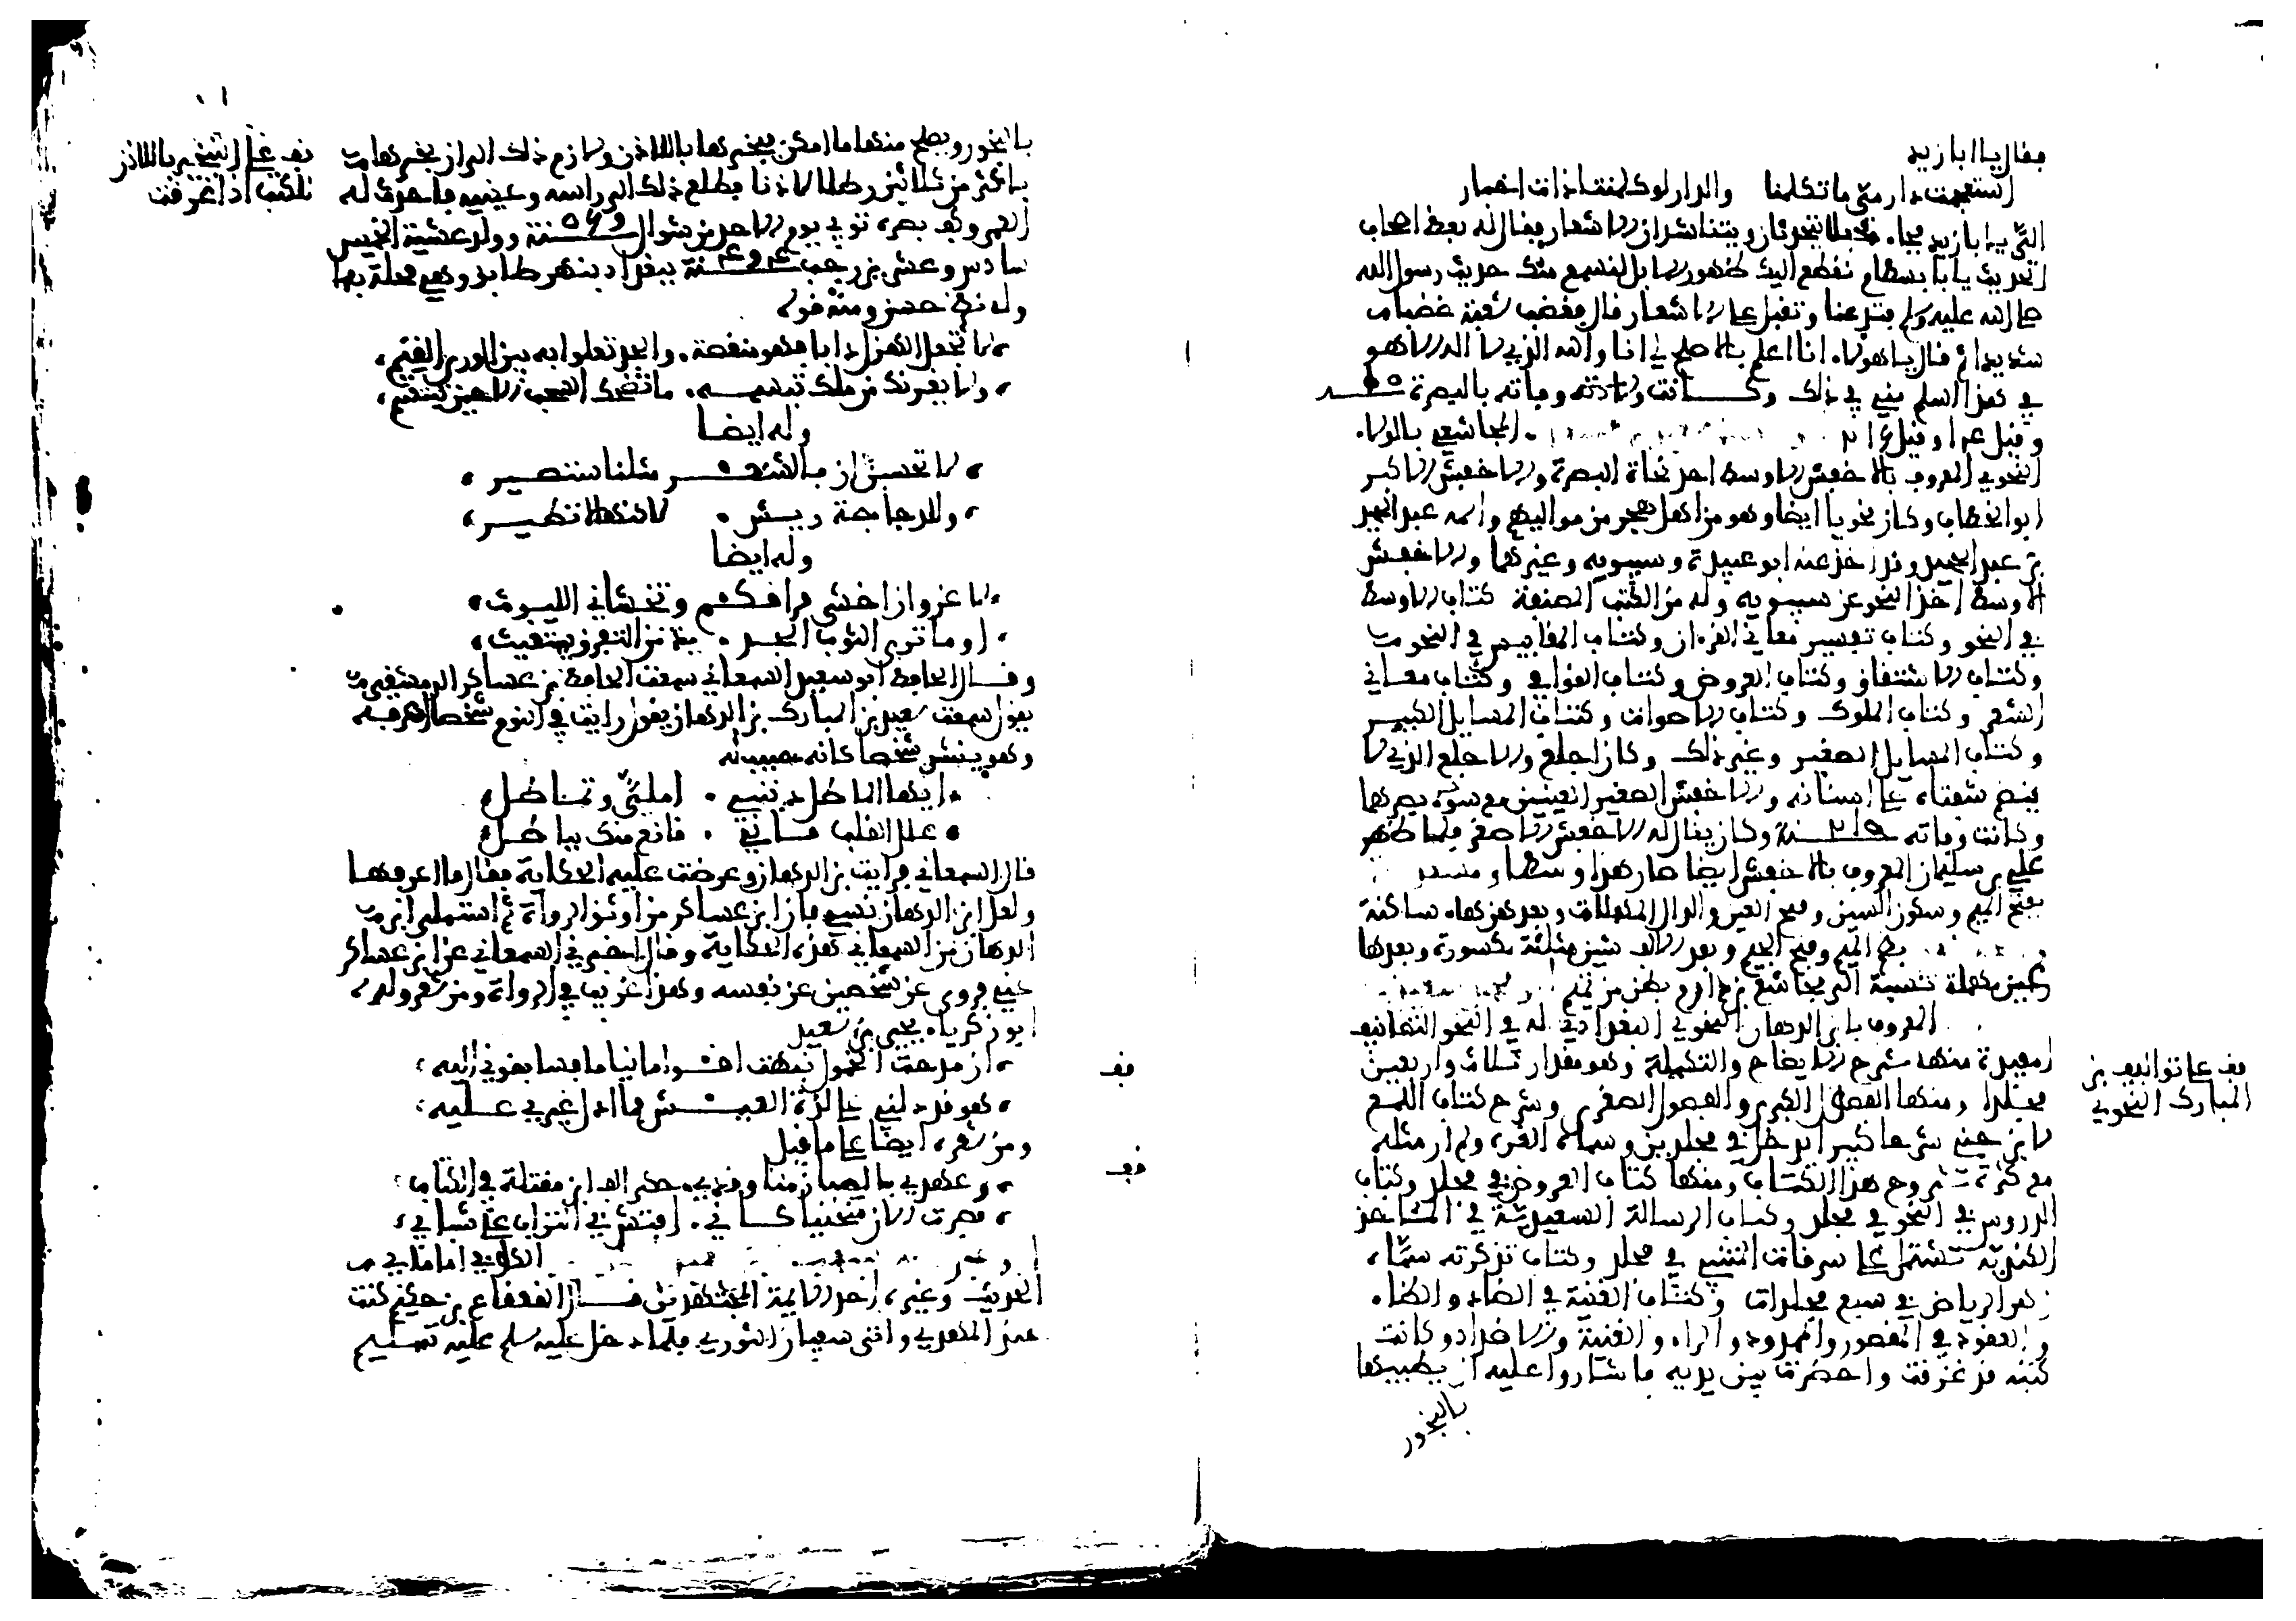 فقال يا ابا زيد
استعجمت دار مي ما تكلمنا والدار لو كلمتنا ذات اخبار
الي يا ابا زيد فجاء فجعلا يتحدثان ويتناشدان الاشعار فقال له بعض اصحاب
الحديث يا ابا بسطام نقطع اليك ظهور الابل لنسمع منك حديث رسول الله
صلى الله عليه وسلم فتدعنا وتقبل على الاشعار قال فغضب شعبة غضبا
شديدا ثم قال يا هولاء انا اعلم بالاصلح لي انا والله الذي لا اله الا هو
في هذا اسلم مني في ذلك وكانت ولادته ووفاته بالبصرة
وقيل المجاشعي بالولاء
النحوي المعروف بالاخفش الاوسط احد نحاة البصرة والاخفش الاكبر
ابو الخطاب وكان نحويا ايضا وهو من اهل هجر من مواليهم واسمه عبد الحميد
بن عبد المجيد وقد اخذ عنه ابو عبيدة وسيبويه وغيرهما والاخفش
الاوسط اخذ النحو عن سيبويه وله من الكتب المصنفة كتاب الاوسط
في النحو وكتاب تفسير معاني القرءان وكتاب المقاييس في النحو
وكتاب الاشتقاق وكتاب العروض وكتاب القوافي وكتاب معاني
الشعر وكتاب الملوك وكتاب الاصوات وكتاب المسايل الكبير
وكتاب المسايل الصغير وغير ذلك وكان اجلع والاجلع الذي لا
ينضم شفتاه على اسنانه والاخفش الصغير العينين مع سوء بصرهما
وكانت وفاته سنة ٢١٥ وكان يقال له الاخفش الاصغر فلما ظهر
علي بن سليمان المعروف بالاخفش ايضا صار هذا وسطا ومسعدة
بفتح الميم وسكون السين وفتح العين والدال المهملات وبعدهن هاء ساكنة
بضم الميم وفتح الجيم وبعد الالف شين مثلثة مكسورة وبعدها
عين مهملة نسبة الى مجاشع بن دارم بطن من تميم
المعروف بابن الدهان النحوي البغدادي له في النحو التصانيف
المفيدة منها شرح الايضاح والتكملة وهو مقدار ثلاث واربعين
مجلدا ومنها الفصول الكبرى والفصول الصغرى وشرح كتاب اللمع
لابن جني شرحا كبيرا يدخل في مجلدين وسماه الغرة ولم ار مثله
مع كثرة شروح هذا الكتاب ومنها كتاب العروض في مجلد وكتاب
الدروس في النحو في مجلد وكتاب الرسالة السعيدية في المآخذ
الكندية تشتمل على سرقات المتنبي في مجلد وكتاب تذكرته سماه
زهر الرياض في سبع مجلدات وكتاب الغنية في الضاد والظاء
والعقود في المقصور والممدود والراء والغنية والاضداد وكانت
كتبه قد غرقت واحضرت بين يديه فاشاروا عليه ان يطيبها
بالبخور
قف على تواليف بن
المبارك النحوي
بالبخور ويصلح منها ما امكن فبخرها باللاذن ولازم ذلك الى ان بخرها
باكثر من ثلاثين رطلا لاذنا فطلع ذلك الى راسه وعينيه فاحدث له
العمى وكف بصره توفي يوم الاحد من شوال سنة ٥٦٩ وولد عشية الخميس
سادس وعشرين رجب سنة ٤٩٤ ببغداد بنهر طابق وهي محلة بها
وله نظم حسن ومنه قوله
لا تجعل الهزل دابا فهو منقصة والجد تعلوا به بين الورى القيم
ولا يغرنك من ملك تبسمه ما تضحك السحب الا حين تبتسم
وله ايضا
لا تحسبن ان بالشعر مثلنا ستصير
وللدجاجة ريش لاكنها لا تطير
وله ايضا
لا غرو ان اخشى فراقكم وتخشاني الليوث
او ما ترى الثوب الجديد من التفرق يستغيث
وقال الحافظ ابو سعيد السمعاني سمعت الحافظ بن عساكر الدمشقي
يقول سمعت سعيد بن المبارك بن الدهان يقول رايت في النوم شخصا اعرفه
وهو ينشد شخصا كانه حبيب له
ايها الماطل ديني املي وتماطل
علل القلب فاني قانع منك بباطل
قال السمعاني فرايت بن الدهان وعرضت عليه الحكاية فقال ما اعرفها
ولعل ابن الدهان نسي فان ابن عساكر من اوثق الرواة ثم استملى ابن
الدهان من السمعاني هذه الحكاية وقال اخبرني السمعاني عن ابن عساكر
عني فروى عن شخصين عن نفسه وهذا غريب في الرواة ومن شعر ولده
ابو زكرياء يحيى بن سعيد
ان مدحت الخمول نبهت اقواما نياما فسابقوني اليه
هو قد دلني على لذة العيش فما لي ادل غيري عليه
ومن شعره ايضا على ما قيل
وعهدي بالصبا زمنا وقدي حكى الف ابن مقلة في الكتاب
فصرت الان منحنيا كاني افتش في التراب على شبابي
الكوفي اماما في
الحديث وغيره احد الايمة المجتهدين قال القعقاع بن حكيم كنت
عند المهدي واتى سفيان الثوري فلما دخل عليه سلم عليه تسليم
قف على التبخير باللاذن
للكتب اذا غرقت
قف
قف